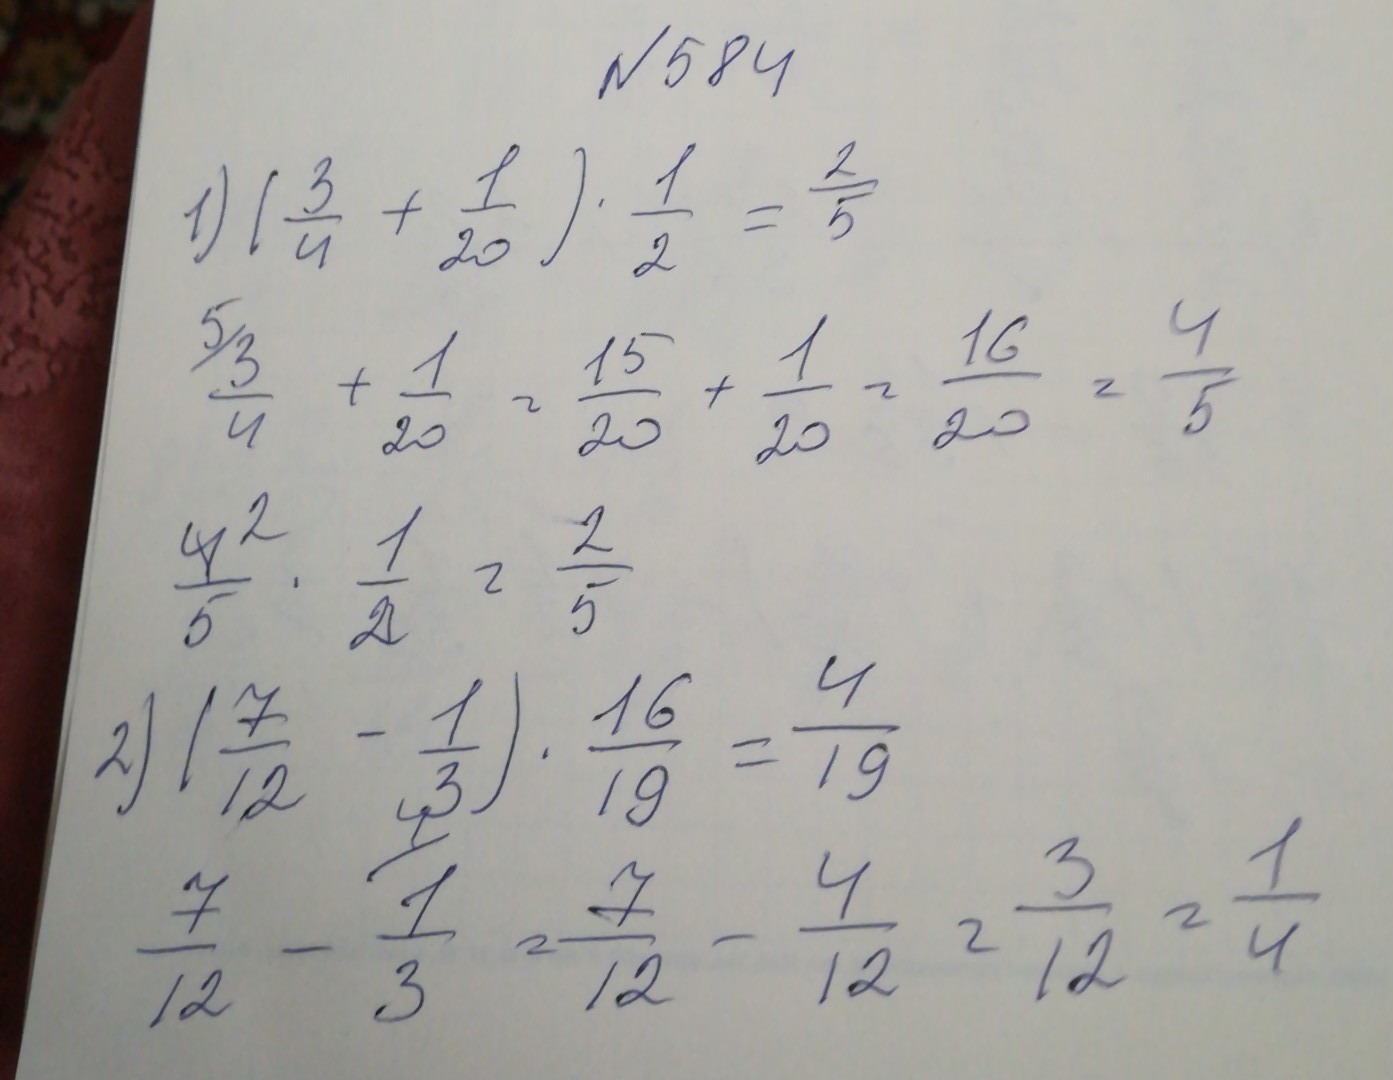 №584
1) (3/4 + 1/20) · 1/2 = 2/5
5/ 3/4 + 1/20 = 15/20 + 1/20 = 16/20 = 4/5
4/5 2 · 1/2 = 2/5
2) (7/12 - 1/3) · 16/19 = 4/19
7/12 - 4/ 1/3 = 7/12 - 4/12 = 3/12 = 1/4